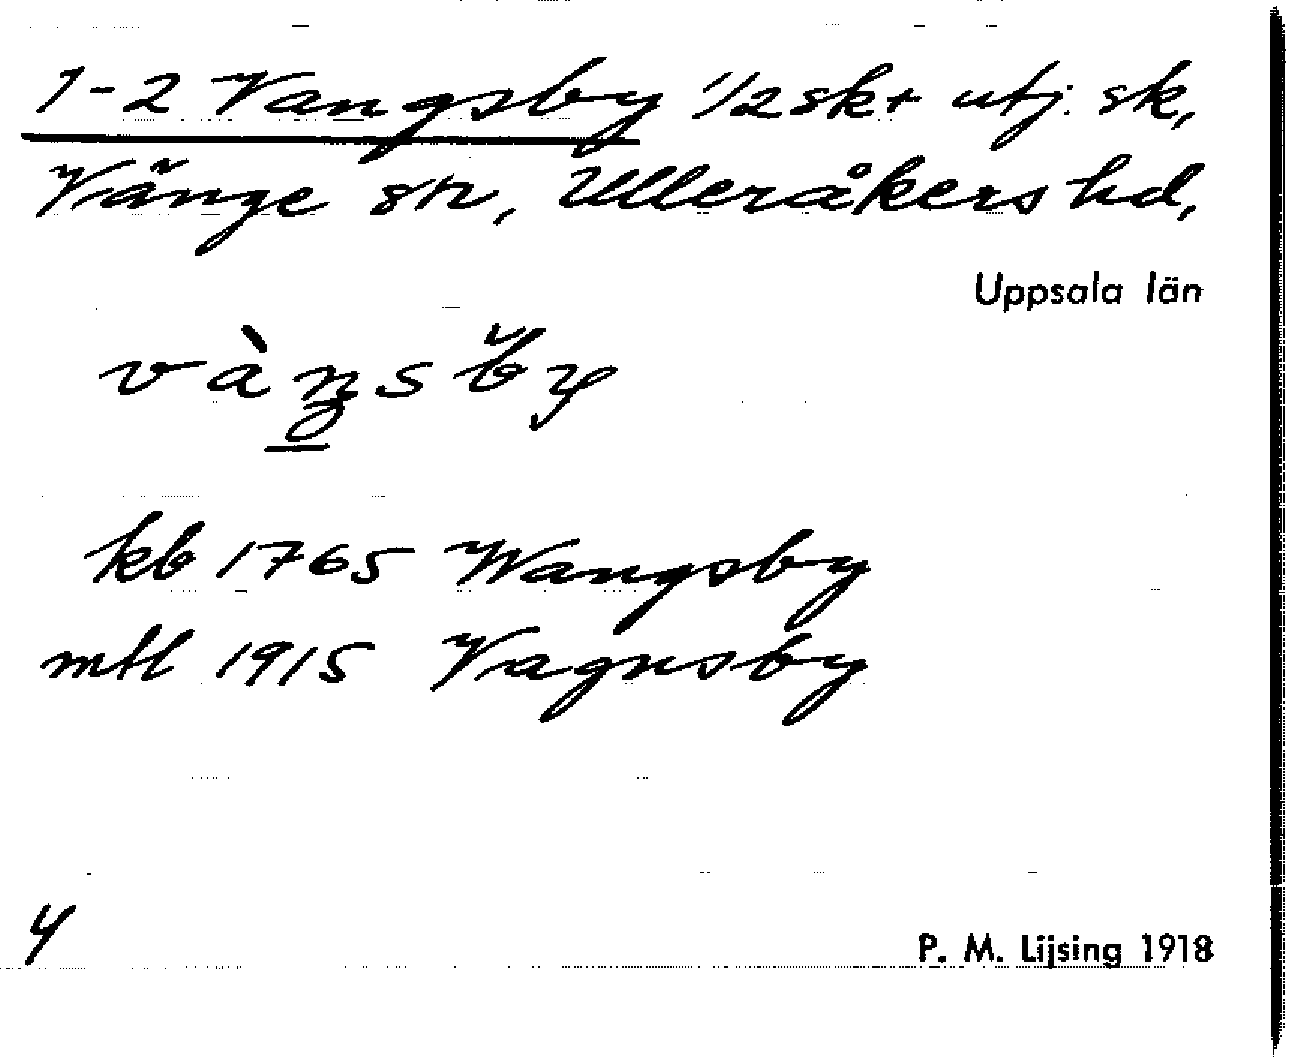 1-2 Vangsby 1/2 sk + utj. sk,
Vänge sn, Ulleråkers hd,
Uppsala län
vàŋsby̆
kb 1765 Wangsby
mtl 1915 Vagnsby
4
P. M. Lijsing 1918